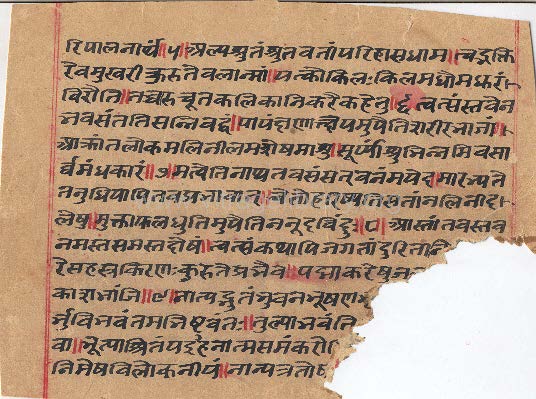 रिपालनार्थं॥५॥अल्पश्रुतंश्रुतवतांपरिहासधाम॥त्वद्भक्ति
रेवमुखरीकुरुतेवलान्मां॥यत्कोकिलःकिलमधौमधुरं
विरौति॥तच्चारुचूतकलिकानिकरैकहेतु॥६॥त्वत्संस्तवेन
भवसंततिसन्निबद्धं॥पापंक्षणात्क्षयमुपैतिशरीरभाजां॥
आक्रांतलोकमलिनीलमशेषमाशु॥सूर्य्यांशुभिन्नमिवसा
र्वरमंधकारं॥७॥मत्वेतिनाथतवसंस्तवनंमयेद॥मारभ्यते
तनुधियापितवप्रभावात्॥चेतोहरिष्यतिसतांनलिनीद
लेषु॥मुक्ताफलद्युतिमुपैतिननूदविंदुः॥८॥आस्तांतवस्तव
नमस्तसमस्तदोषं॥त्वत्संकथापिजगतांदुरितानि
रेसहस्रकिरणःकुरुतेप्रभैव॥पद्माकरेषुज
काशभांजि॥९॥नात्यद्भुतंभुवनभूषण
र्भुविभवंतमभिष्टुवंतः॥तुल्याभवंति
वा॥भूत्याश्रितंयइहनात्मसमंकरो
निमेषविलोकनीयं॥नान्यत्रतोष